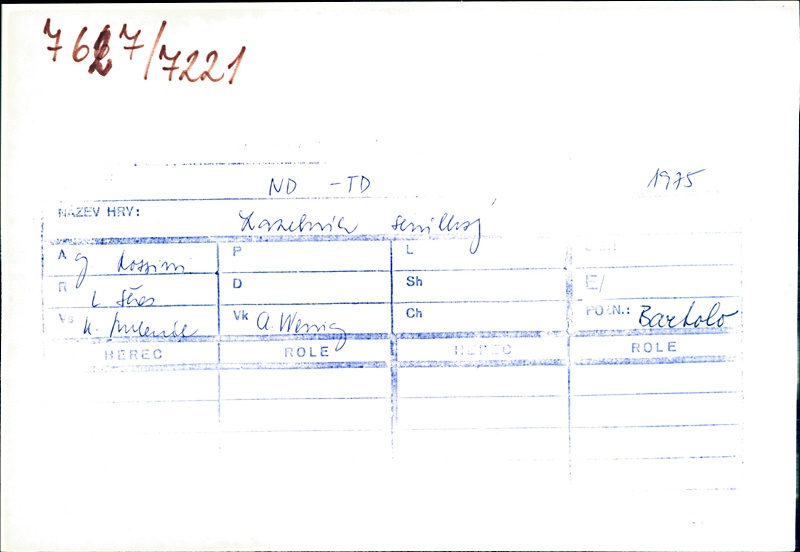 7627/7221
ND - TD 1975
NÁZEV HRY: Lazebník sevillský
A g Rossini P L
R L. Štros D Sh E/
Vs Vk A. Wenig Ch POZN.: Bartolo
HEREC ROLE HEREC ROLE